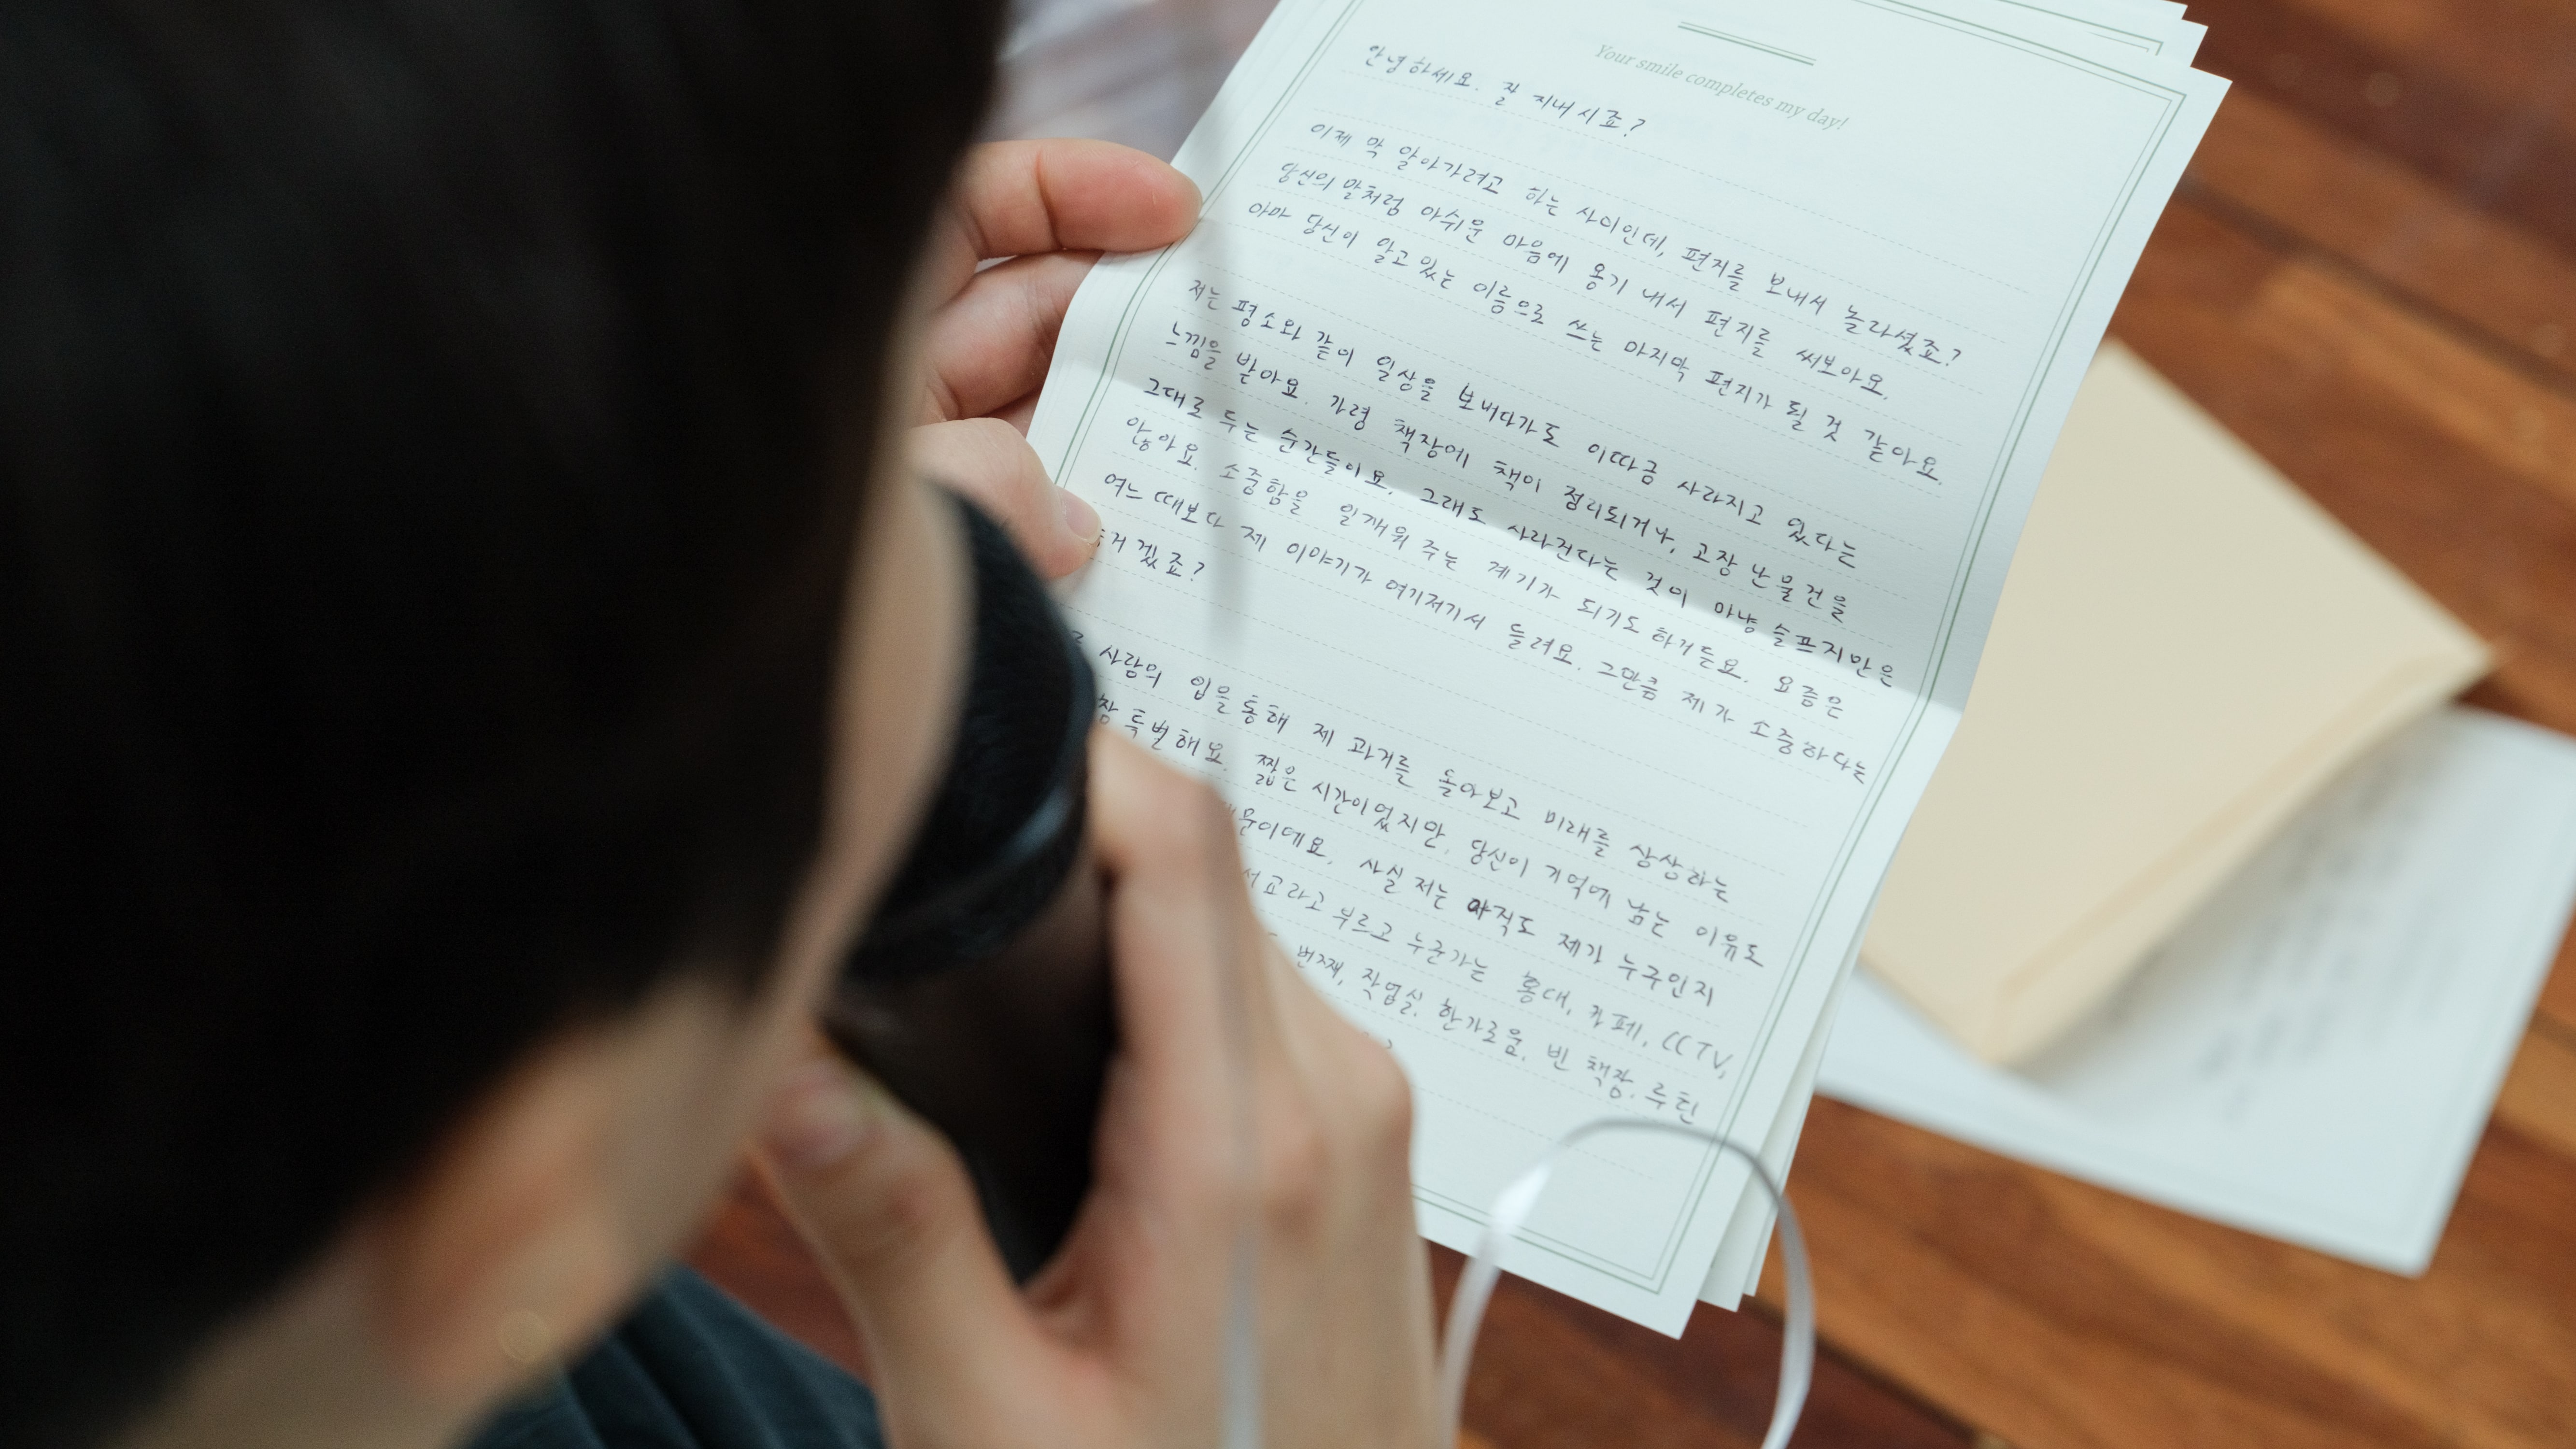 Your smile completes my day!
안녕하세요. 잘 지내시죠?
이제 막 알아가려고 하는 사이인데, 편지를 보내서 놀라셨죠?
당신의 말처럼 아쉬운 마음에 용기 내서 편지를 써보아요.
아마 당신이 알고 있는 이름으로 쓰는 마지막 편지가 될 것 같아요.
저는 평소와 같이 일상을 보내다가도 이따금 사라지고 있다는
느낌을 받아요. 가령 책장에 책이 정리되거나, 고장 난 물건을
그대로 두는 순간들이요. 그래도 사라진다는 것이 마냥 슬프지만은
않아요. 소중함을 일깨워 주는 계기가 되기도 하거든요. 요즘은
여느 때보다 제 이야기가 여기저기서 들려요. 그만큼 제가 소중하다는
거겠죠?
사람의 입을 통해 제 과거를 돌아보고 미래를 상상하는
참 특별해요. 짧은 시간이었지만, 당신이 기억에 남는 이유도
때문이에요. 사실 저는 아직도 제가 누구인지
서교라고 부르고 누군가는 홍대, 카페, CCTV,
번째, 작업실. 한가로움. 빈 책장. 루틴